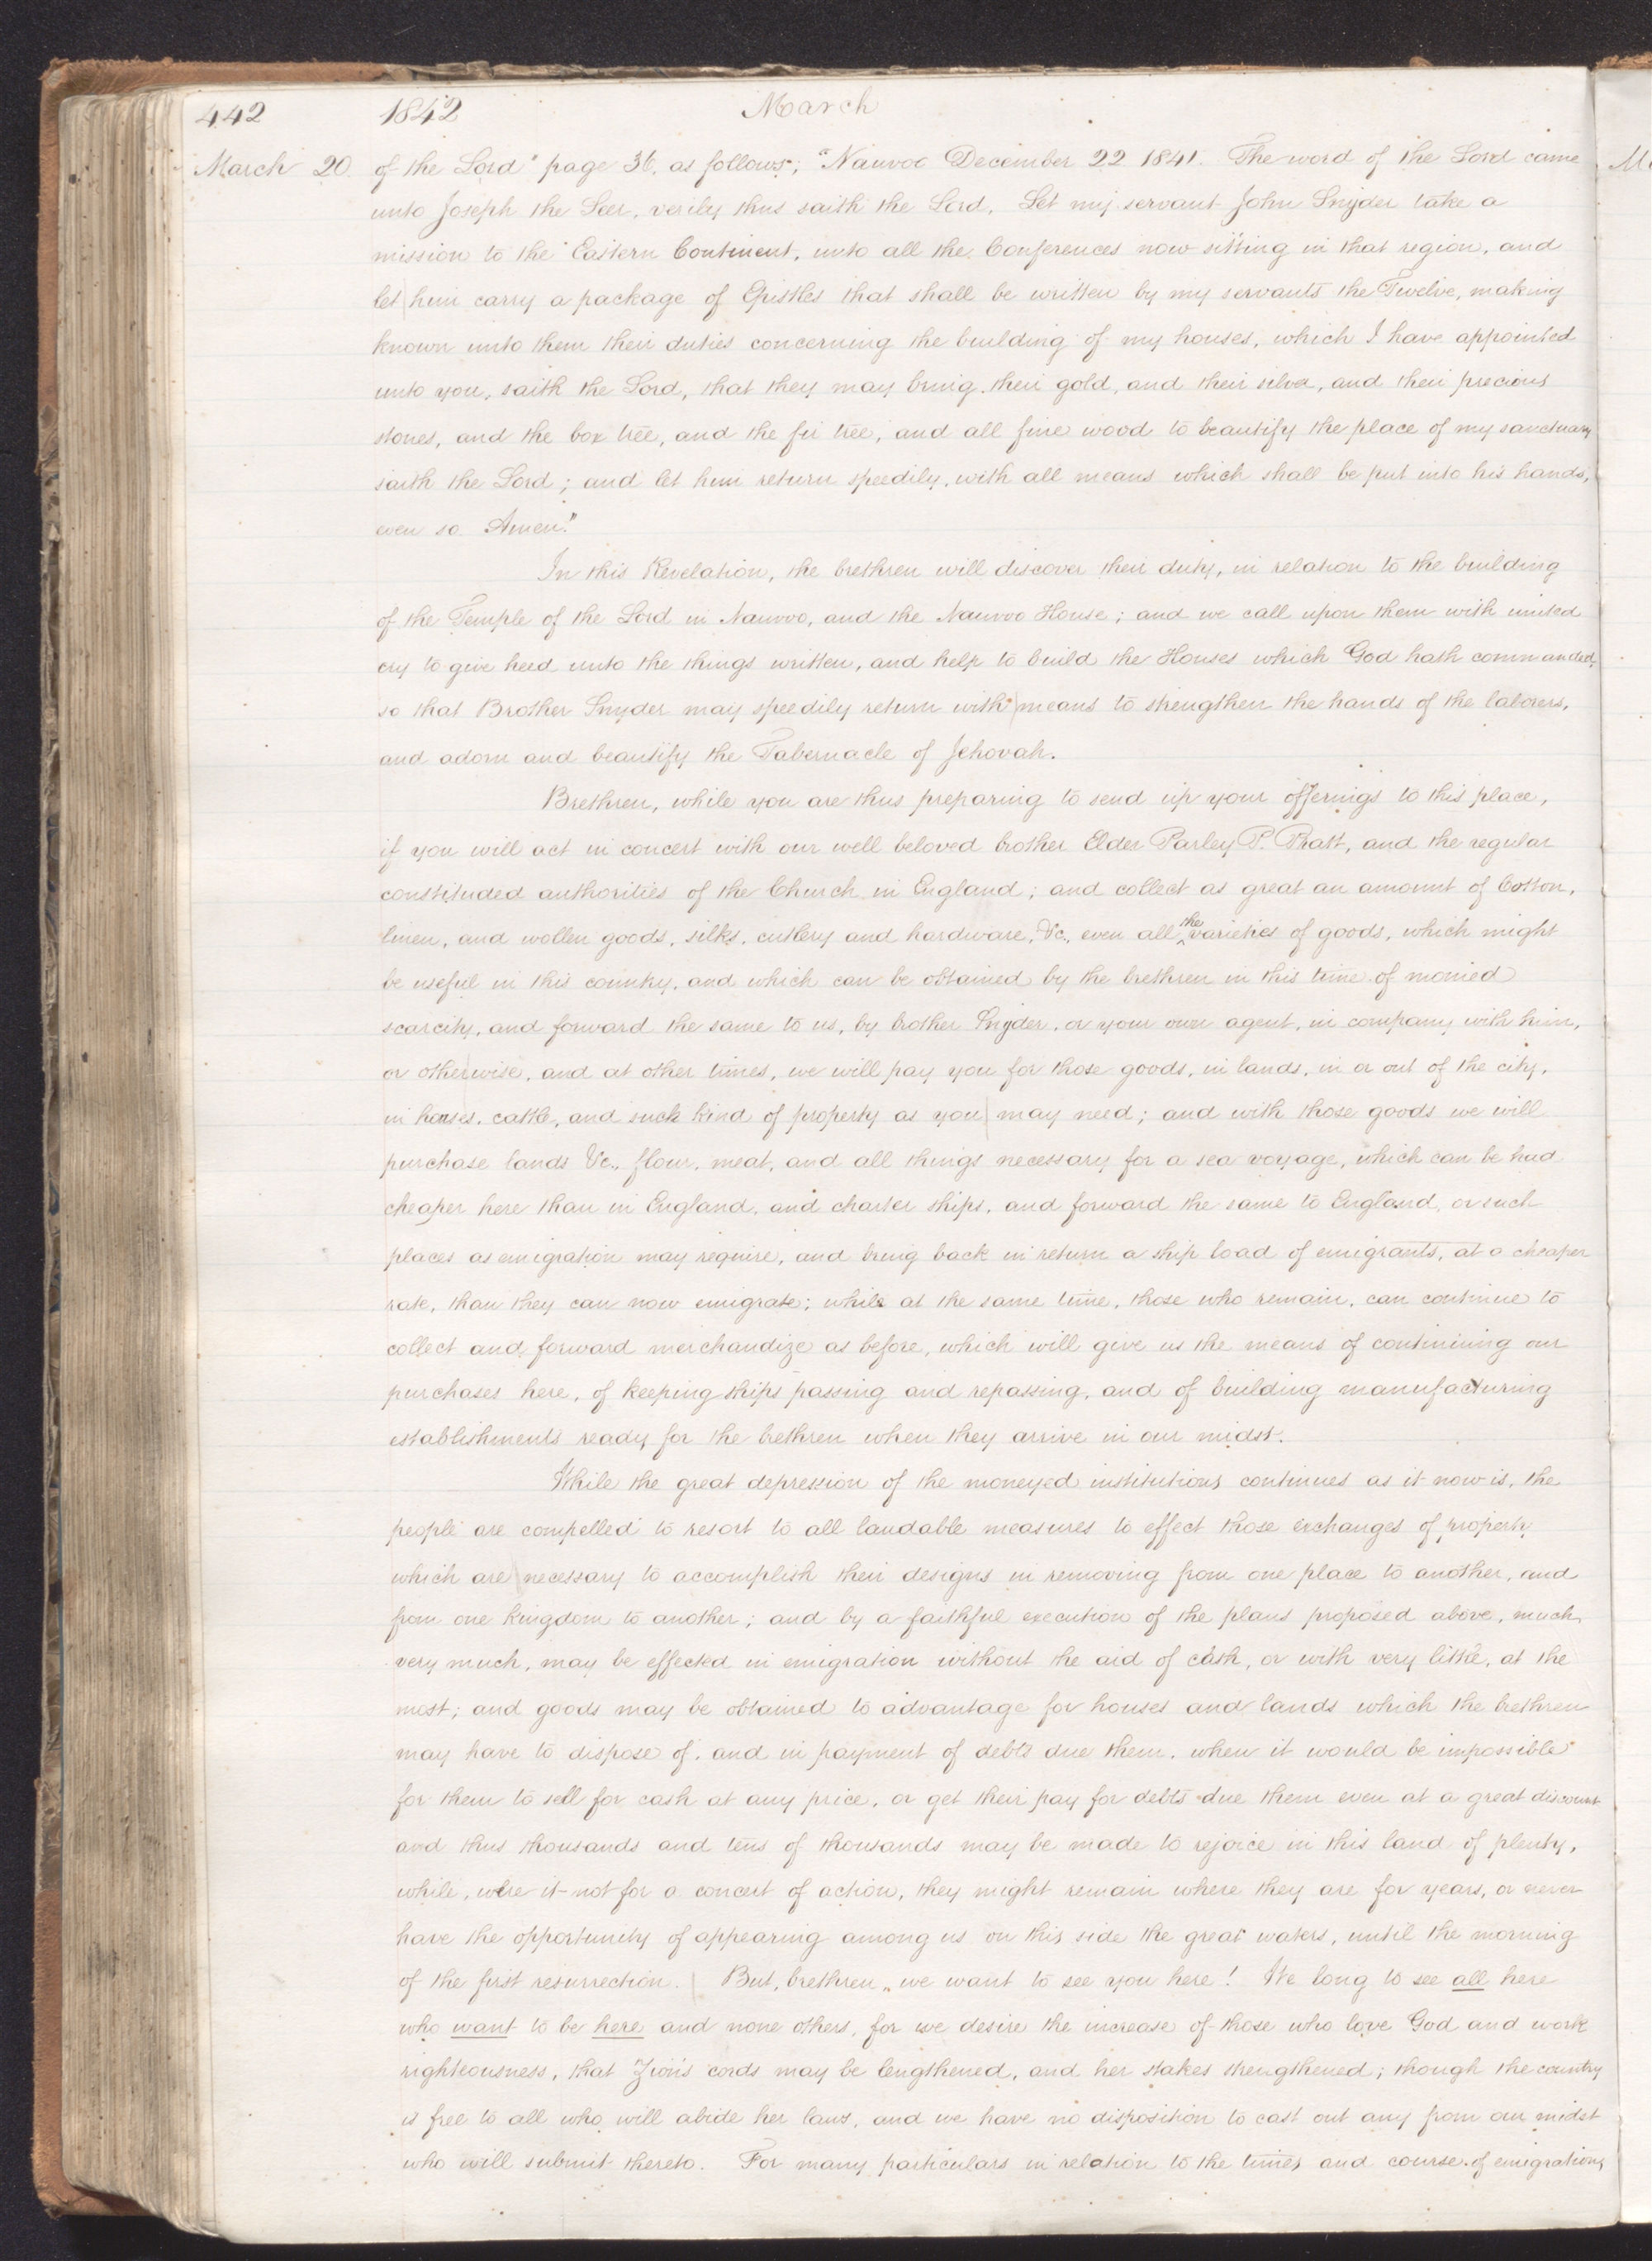 442 1842 March
March 20. of the Lord" page 36, as follows; "Nauvoo December 22 1841. The word of the Lord came
unto Joseph the Seer, verily thus saith the Lord, Let my servant John Snyder take a
mission to the Eastern Continent, unto all the Conferences now sitting in that region, and
let him carry a package of Epistles that shall be written by my servants the Twelve, making
known unto them their duties concerning the building of my houses, which I have appointed
unto you, saith the Lord, that they may bring their gold, and their silver, and their precious
stones, and the box tree, and the fir tree, and all fine wood to beautify the place of my sanctuary
saith the Lord; and let him return speedily, with all means which shall be put into his hands,
even so. Amen."
In this Revelation, the brethren will discover their duty, in relation to the building
of the Temple of the Lord in Nauvoo, and the Nauvoo House; and we call upon them with united
cry to give heed unto the things written, and help to build the Houses which God hath commanded,
so that Brother Snyder may speedily return with means to strengthen the hands of the laborers,
and adorn and beautify the Tabernacle of Jehovah.
Brethren, while you are thus preparing to send up your offerings to this place,
if you will act in concert with our well beloved brother Elder Parley P. Pratt, and the regular
constituded authorities of the Church in England; and collect as great an amount of Cotton,
linen, and wollen goods, silks, cutlery and hardware, &c., even all the varieties of goods, which might
be useful in this country, and which can be obtained by the brethren in this time of monied
scarcity, and forward the same to us, by brother Snyder, or your own agent, in company with him,
or otherwise, and at other times, we will pay you for those goods, in lands, in or out of the city,
in houses, cattle, and such kind of property as you may need; and with those goods we will
purchase lands &c., flour, meat, and all things necessary for a sea voyage, which can be had
cheaper here than in England, and charter ships, and forward the same to England, or such
places as emigration may require, and bring back in return a ship load of emigrants, at a cheaper
rate, than they can now emigrate; while at the same time, those who remain, can continue to
collect and forward merchandize as before, which will give us the means of continuing our
purchases here, of keeping ships passing and repassing, and of building manufacturing
establishments ready for the brethren when they arrive in our midst.
While the great depression of the moneyed institutions continues as it now is, the
people are compelled to resort to all laudable measures to effect those exchanges of property
which are necessary to accomplish their designs in removing from one place to another, and
from one kingdom to another; and by a faithful execution of the plans proposed above, much,
very much, may be effected in emigration without the aid of cash, or with very little, at the
most; and goods may be obtained to advantage for houses and lands which the brethren
may have to dispose of, and in payment of debts due them, when it would be impossible
for them to sell for cash at any price, or get their pay for debts due them even at a great discount
and thus thousands and tens of thousands may be made to rejoice in this land of plenty,
while, were it not for a concert of action, they might remain where they are for years, or never
have the opportunity of appearing among us on this side the great waters, until the morning
of the first resurrection. But, brethren, we want to see you here! We long to see all here
who want to be here and none others, for we desire the increase of those who love God and work
righteousness, that Zion's cords may be lengthened, and her stakes strengthened; though the country
is free to all who will abide her laws, and we have no disposition to cast out any from our midst
who will submit thereto. For many particulars in relation to the times and course of emigration,